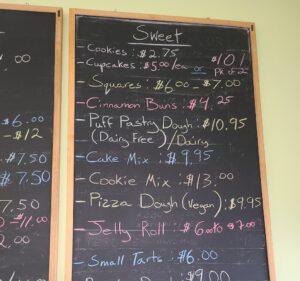 .00
$6.00
- $12
$7.50
$7.50
7.50
- 11.00
2.00
Sweet
- Cookies: $2.75
- Cupcakes: $5.00/ea or $10
- Squares: $6.00 - $7.00
- Cinnamon Buns: $4.25
- Puff Pastry Dough: $10.95
(Dairy Free)/Dairy
- Cake Mix: $9.95
- Cookie Mix: $13.00
- Pizza Dough (Vegan): $9.95
- Jelly Roll: $6.00 to $7.00
- Small Tarts: $6.00
$9.00